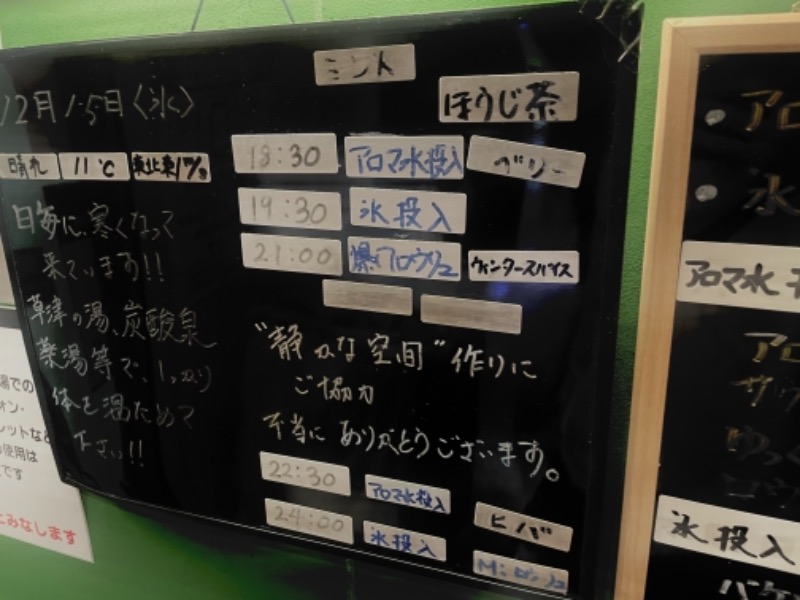 12月15日〈水〉
晴れ 11℃
日毎に寒くなって
来ています!!
草津の湯、炭酸泉
薬湯等で、しっかり
体を温ためて
下さい!!
ミント
ほうじ茶
18:30 アロマ水投入 ベリー
19:30 氷投入
21:00 爆アロウリュ ウィンタースパイス
“静かな空間”作りに
ご協力
本当にありがとうございます。
22:30 アロマ水投入 ヒノキ
24:00 氷投入
湯での
オン・
の使用は
です
とみなします
アロ
氷
アロマ水
アロ
氷投入
バケ